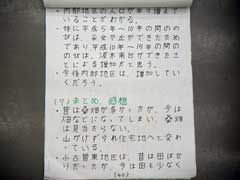 ・内部地区の人口が年々増えて
いることがわかる。
・特に平成5年〜10年の間のの
びは、采女が丘ができたため
であり平成10年〜15年の間の
のびは、波木南台ができたこ
とによる増加だと思う。
・今後内部地区は、増加してい
くだろう。
(7) まとめ、感想
・昔は桑畑が多かったが、今は
畑などになってしまい、桑畑
は見当たらない。
・山がけずられ住宅地へと変わ
っている。
・小古曽東地区は、昔は田ばか
りだったが、今は田も少なく
(40)